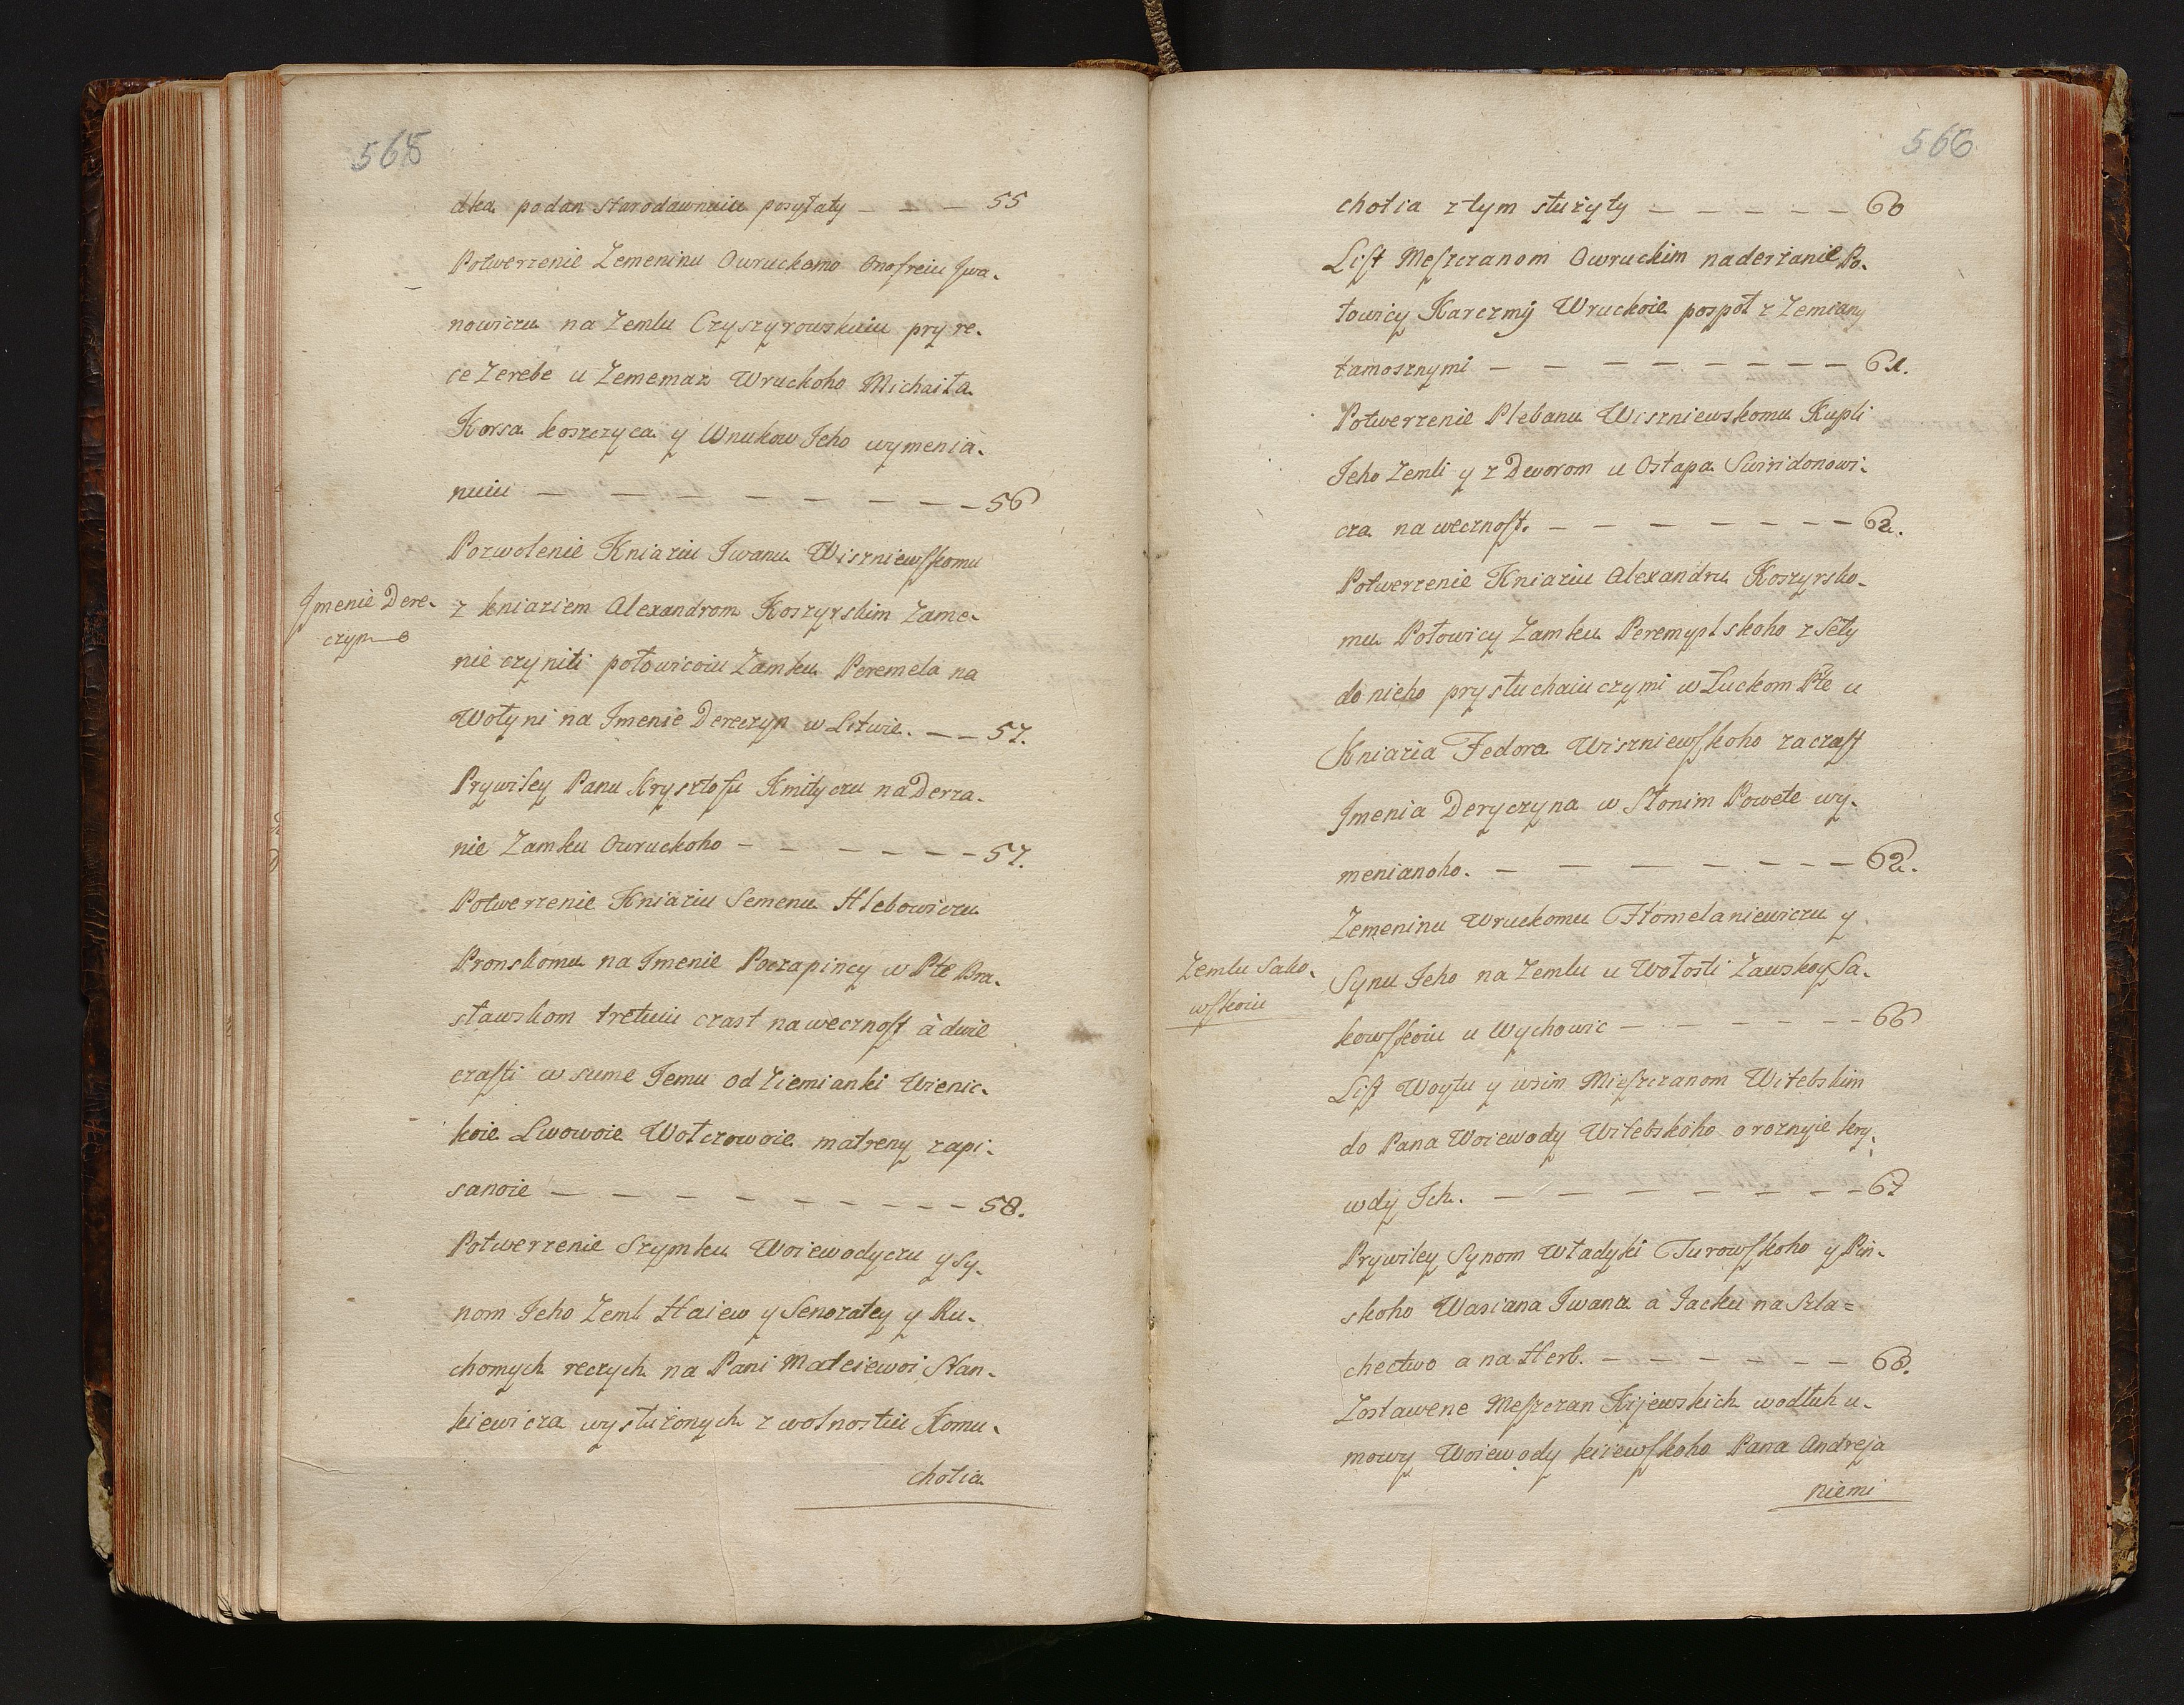 565
dka podan starodawnuiu posyłaty — — — 55
Potwerzenie Zemeninu Owruckomo Onofreiu Jwa-
nowiczu na Zemlu Czyszyrowskuiu pry re-
ce Zerebe u Zememan Wruckoho Michaiła
Korsa koszczyca y Wnukow Jeho wymenia-
nuiu — — — — — — — — 56
Pozwolenie Kniaziu Jwanu Wiszniewskomu
Jmenie Dere-
czyn
z kniaziem Alexandrom Koszyrskim Zame-
nie czyniti połowicoiu Zamku Peremela na
Wołyni na Jmenie Dereczyn w Litwie. — — 57.
Prywiley Panu Krysztofu Kmityczu na Derza-
nie Zamku Owruckoho — — — — — — 57.
Potwerzenie Kniaziu Semenu Hlebowiczu
Pronskomu na Jmenie Poczapincy w Pte Bra-
sławskom tretuiu czast na wecznost à dwie
czasti w sume Jemu od Ziemianki Wienic-
koie Lwowoie Wołczowoie matreny zapi-
sanoie — — — — — — — — 58.
Potwerzenie Szymku Woiewodyczu y sy-
nom Jeho Zeml Haiew y Senozatey y Ru-
chomych reczych na Pani Mateiewoi Stan-
kiewicza wysłużonych z wolnostiu Komu-
chotia
566
chotia z tym służyty — — — — — 60
List Meszczanom Owruckim na derżanie Po-
łowicy Karczmy Wruckoie pospoł z Zemiany
tamosznymi — — — — — — — — 61.
Potwerzenie Plebanu Wiszniewskomu Kupli
Jeho Zemli y z Dworom u Ostapa Swiridonowi-
cza na wecznost. — — — — — — — 62.
Potwerzenie Kniaziu Alexandru Koszyrsko-
mu Połowicy Zamku Peremyplskoho z Seły
do nieho prysłuchaiuczymi w Łuckom Pte u
Kniazia Fedora Wiszniewskoho za czast
Jmenia Deryczyna w Słonim Powete wy-
menianoho. — — — — — — — 62.
Zemeninu Wruckomu Homelaniewiczu y
Zemlu Sako-
wskoiu
Synu Jeho na Zemlu u Wołosti Zawskoy Sa-
kowskoiu u Wychowic — — — — — — 66
List Woytu y wsim Mieszczanom Witebskim
do Pana Woiewody Witebskoho o roznyie kry-
wdy Jch. — — — — — — — 67
Prywiley Synom Władyki Turowskoho y Pin-
skoho Wasiana Jwana a Jacku na Szla=
chectwo a na Herb. — — — — — — 68.
Zostawene Meszczan Kijewskich wodłuh u-
mowy Woiewody kiiewskoho Pana Andreja
niemi